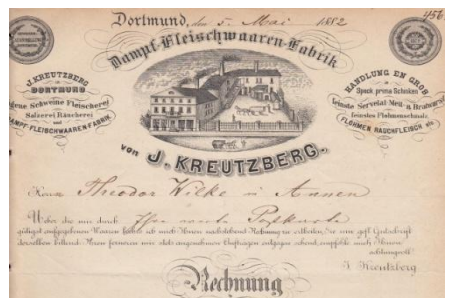 456
Dortmund, den 5. Mai 1882
Dampf-Fleischwaaren-Fabrik
J. KREUTZBERG
DORTMUND
Schweine Fleischerei
Salzerei Räucherei
und
DAMPF-FLEISCHWAAREN-FABRIK
HANDLUNG EN GROS
in
Speck prima Schinken
feinste Servelat-Mett- &
feinstes Flohmenschmalz
FLOHMEN RAUCHFLEISCH etc.
von J. KREUTZBERG.
Herrn Theodor Wilke in Annen
Über die mir durch Ihre werte Postkarte
gütigst aufgegebenen Waaren habe ich mich Ihnen nachstehend Rechnung zu ertheilen, Sie um gefl. Gutschrift
derselben bittend. Ihren ferneren mir stets angenehmen Aufträgen entgegen sehend, empfehle mich Ihnen
achtungsvoll
J. Kreutzberg
Rechnung